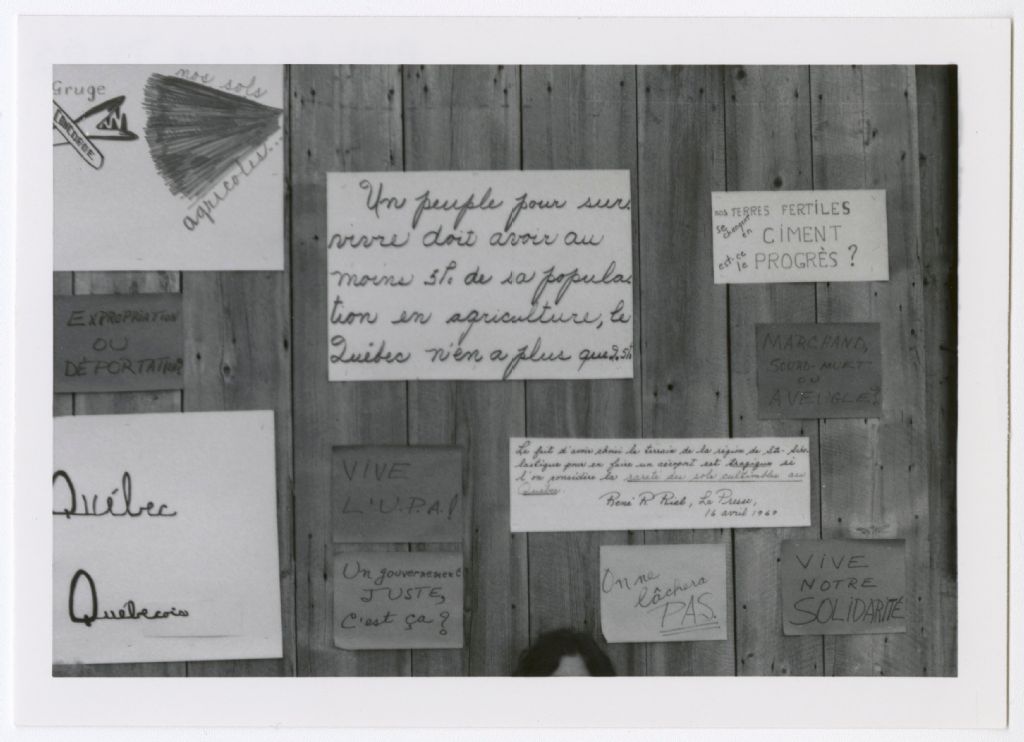 Gruge
CONCORDE
nos sols
agricoles...
Un peuple pour sur-
vivre doit avoir au
moins 5% de sa popula-
tion en agriculture, le
Québec n'en a plus que 2.5%
nos TERRES FERTILES
se changent
en CIMENT
est-ce
le PROGRÈS ?
EXPROPRIATION
OU
DÉPORTATION?
MARCHAND,
SOURD-MUET
OU
AVEUGLE?
Québec
Québecois
VIVE
L'U.P.A!
Le fait d'avoir choisi le terrain de la région de Ste-Scho-
lastique pour en faire un aéroport est tragique si
l'on considère la rareté des sols cultivables au
Québec.
René R. Riel, La Presse,
16 avril 1969
Un gouvernement
JUSTE,
C'est ça ?
On ne
lâchera
PAS.
VIVE
NOTRE
SOLIDARITÉ